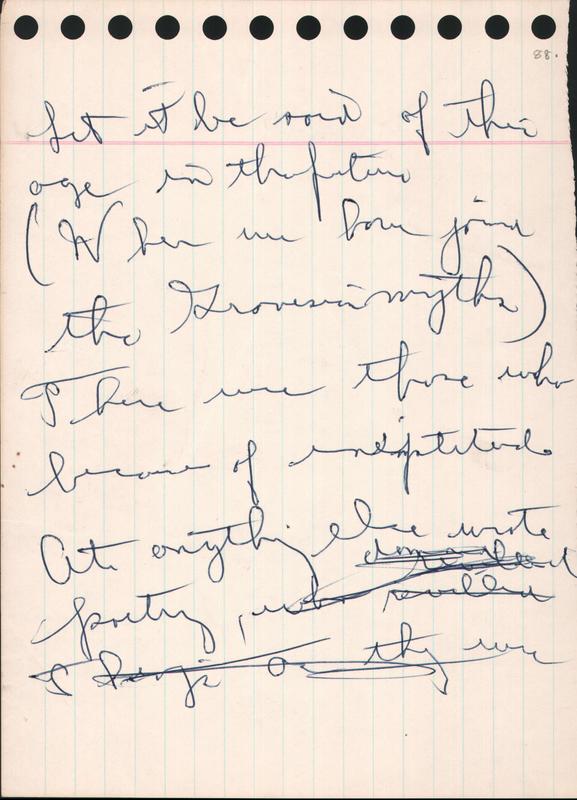 88.
Let it be said of this
age in the future
(When we have joined
the myths)
There were those who
because of ineptitude
At anything else wrote
poetry,
they were